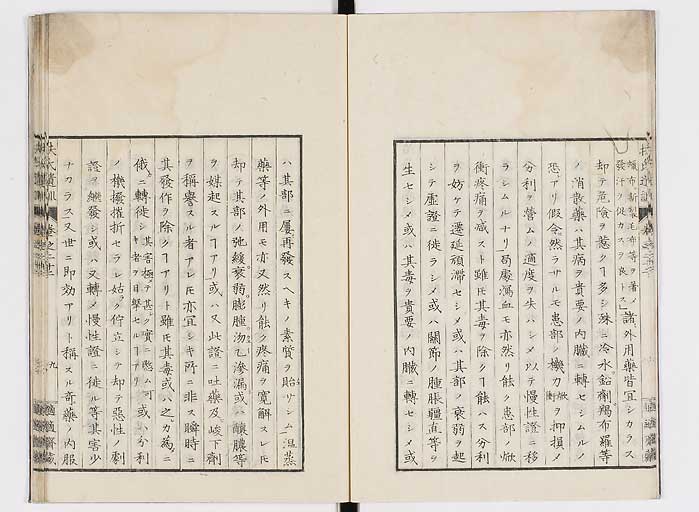 發汗ヲ促カスヲ良トス諸外用藥皆宜シカラス
却テ危險ヲ惹クヿ多シ殊ニ冷水鉛劑羯布羅等
ノ消散藥ハ其病ヲ貴要ノ内臟ニ轉セシムルノ
恐アリ假令然ラサルモ患部ノ機力ヲ抑損メ
分利ヲ營ムノ適度ヲ失ハシメ以テ慢性證ニ移
ラシムルナリ局處瀉血モ亦然リ能ク患部ノ焮
衝疼痛ヲ减スト雖𪜈其毒ヲ除クヿ能ハス分利
ヲ妨ケテ遷延頑滯セシメ或ハ其部ノ衰弱ヲ起
シテ虚證ニ徙ラシメ或ハ關節ノ腫脹疆直等ヲ
生セシメ或ハ其毒ヲ貴要ノ内臟ニ轉セシメ或
ハ其部ニ屢再發スヘキノ素質ヲ貽サシム温蒸
藥等ノ外用モ亦又然リ能ク疼痛ヲ寛解スレ𪜈
却テ其部ノ弛緩衰弱膨腫沕乙滲漏或ハ釀膿等
ヲ媒起スルヿアリ或ハ又此證ニ吐藥及峻下劑
ヲ稱譽スル者アレ𪜈亦宜シキ所ニ非ス瞬時ニ
其發作ヲ除クヿアリト雖𪜈其毒或ハ之カ爲ニ
俄ニ轉徙シ其害極テ甚キ者ヲ目撃セルヿアリ實ニ愍ム可或ハ分利
ノ機撥摧折セラレ姑ク佇立シテ却テ惡性ノ劇
證ヲ繼發シ或ハ又轉メ慢性證ニ徙ル等其害少
ナカラス又世ニ即効アリト稱スル奇藥ノ内服
扶氏遺訓 卷之二十三
九
適適齋藏